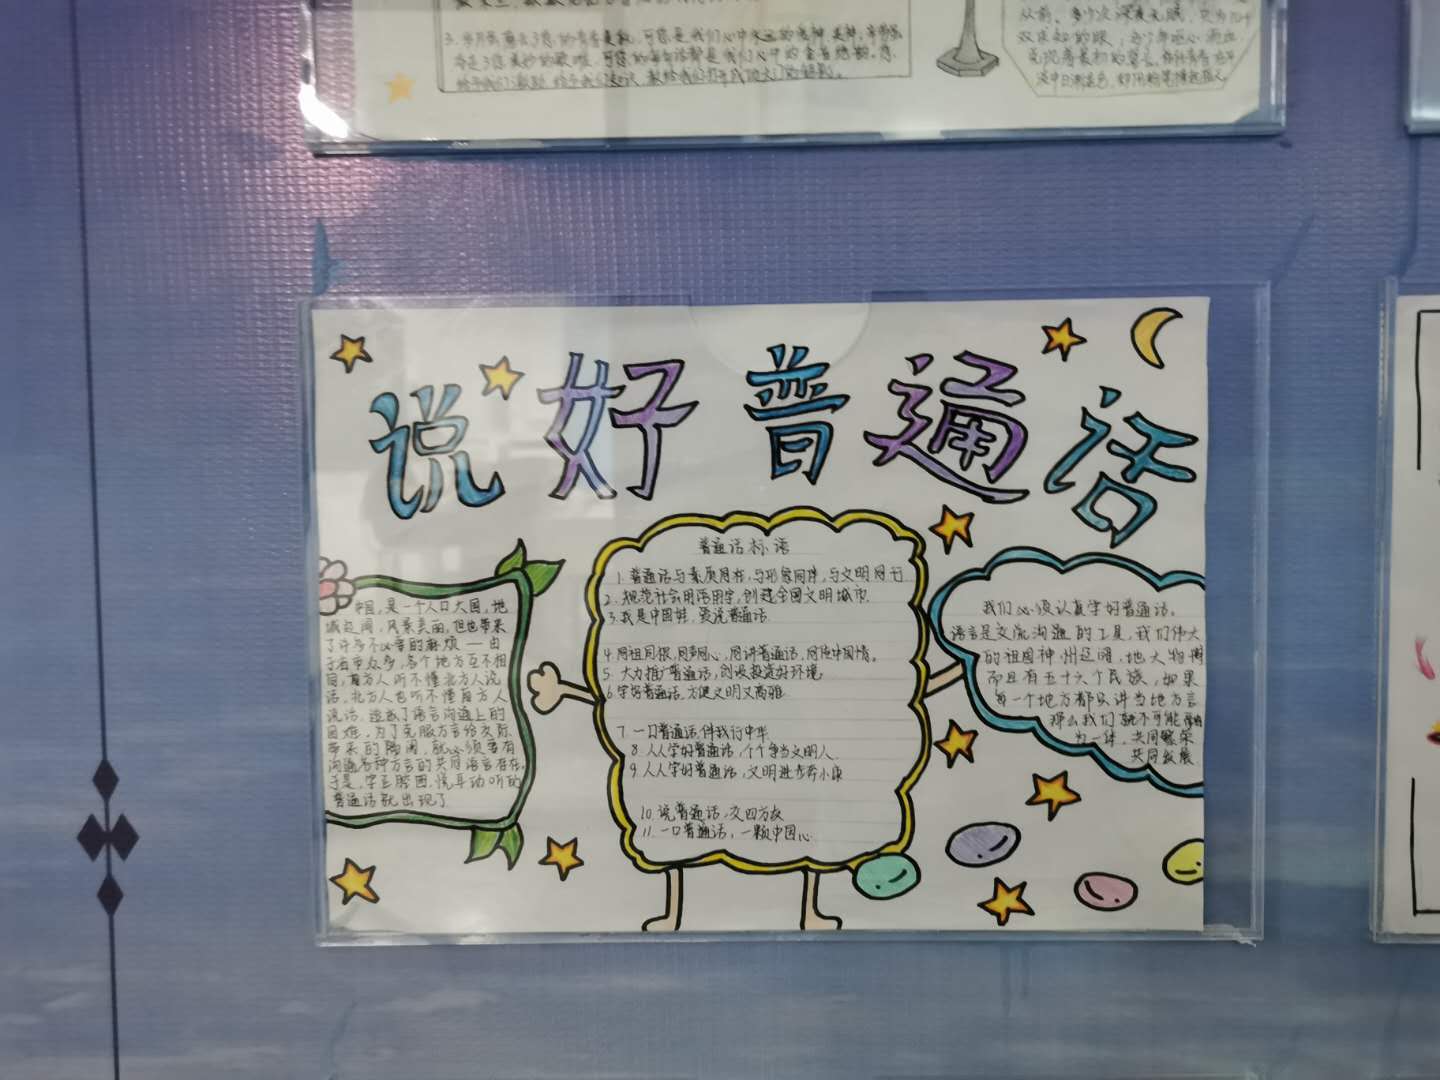 3.
给予我们激励 给予我们知识
从前,多少次深夜无眠
说好普通话
中国,是一个人口大国,地
域辽阔,风景美丽,但也带来
了许多不必要的麻烦——由
于方言众多,各个地方互不相
同,南方人听不懂北方人说
话,北方人也听不懂南方人
说话.造成了语言沟通上的
困难.为了克服方言给交际
带来的隔阂,就必须要有
沟通各种方言的共同语言存在,
于是,字正腔圆,悦耳动听的
普通话就出现了
普通话标语
1.普通话与素质同在,与形象同伴,与文明同行
2.规范社会用语用字,创建全国文明城市.
3.我是中国娃,爱说普通话.
4.同祖同根,同声同心,同讲普通话,同传中国情。
5.大力推广普通话,创设投资好环境
6.学好普通话,方便文明又高雅.
7.一口普通话,伴我行中华
8.人人学好普通话,个个争当文明人
9.人人学好普通话,文明进步奔小康
10.说普通话,交四方友
11.一口普通话,一颗中国心.
我们必须认真学好普通话。
语言是交流沟通的工具,我们伟大
的祖国神州辽阔,地大物博
而且有五十六个民族,如果
每一个地方都只讲当地方言
那么我们就不可能
为一体,共同繁荣
共同发展.